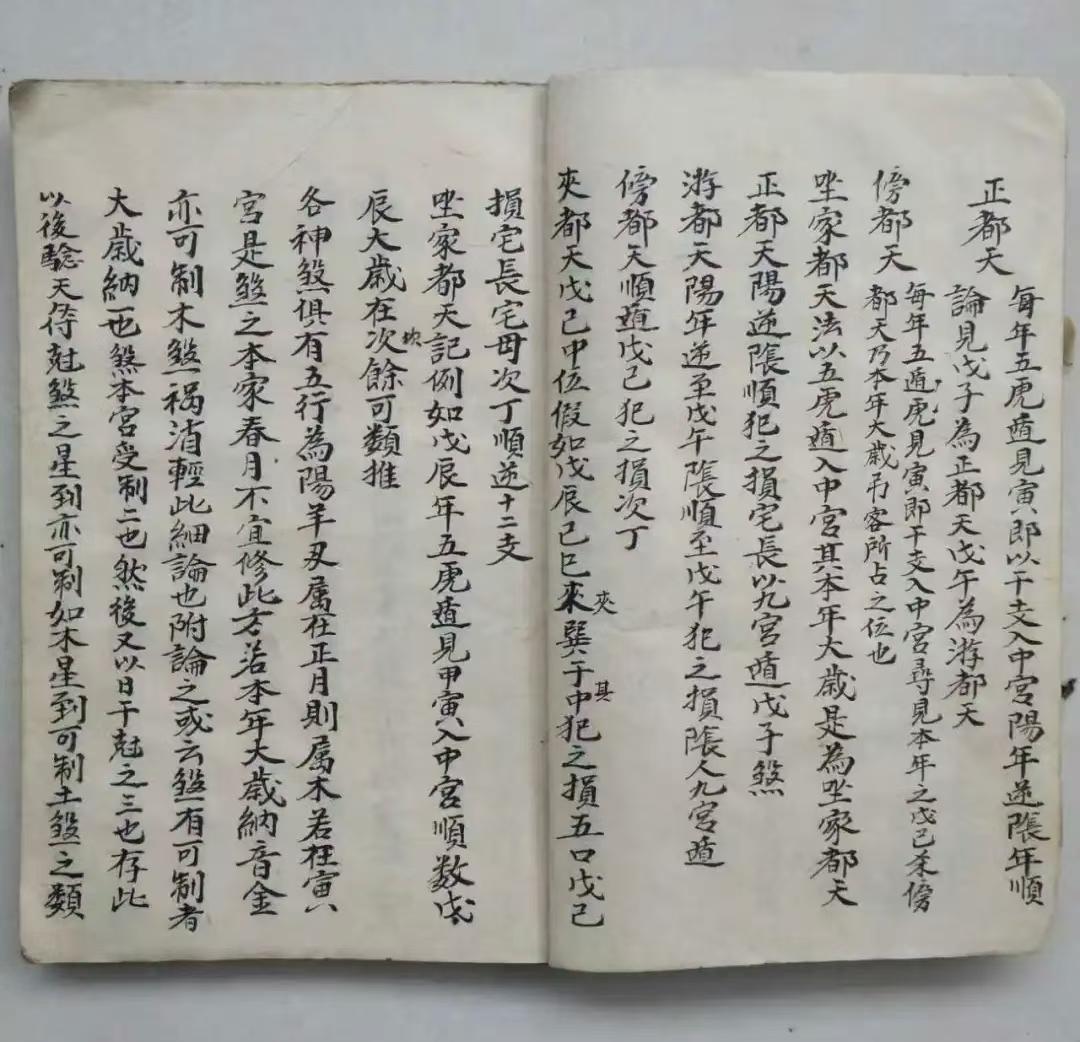 正都天
每年五虎遁見寅即以干支入中宮陽年逆陰年順
論見戊子為正都天戊午為游都天
傍都天
每年五遁虎見寅即干支入中宮尋見本年之戊己杀傍
都天乃本年大歲吊客所占之位也
坐家都天法以五虎遁入中宮其本年大歲是為坐家都天
正都天陽逆陰順犯之損宅長以九宮遁戊子煞
游都天陽年逆至戊午陰順至戊午犯之損陰人九宮遁
傍都天順遁戊己犯之損次丁
夾都天戊己中位假如戊辰己巳來夾巽于中其犯之損五口戊己
損宅長宅母次丁順逆十二支
坐家都天記例如戊辰年五虎遁見甲寅入中宮順数戊
辰大歲在坎次餘可類推
各神煞俱有五行為陽羊刃屬在正月則屬木若在寅
宮是煞之本家春月不宜修此方若本年大歲納音金
亦可制木煞禍消輕此細論也附論之或云煞有可制者
大歲納一也煞本宮受制二也然後又以日干尅之三也存此
以後驗天待尅煞之星到亦可制如木星到可制土煞之類